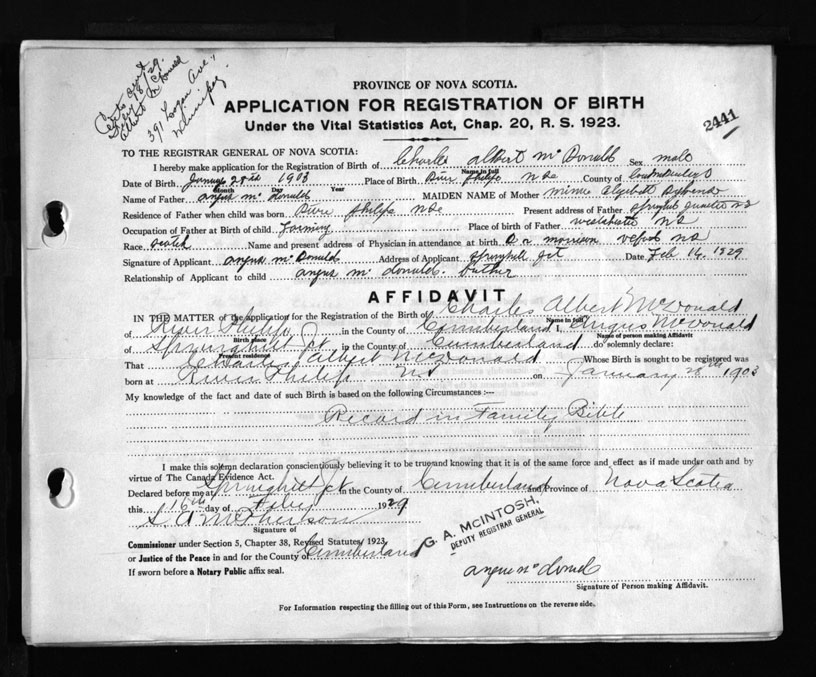 Albert McDonald
391 Logan Ave.,
Winnipeg.
2441
PROVINCE OF NOVA SCOTIA.
APPLICATION FOR REGISTRATION OF BIRTH
Under the Vital Statistics Act, Chap. 20, R. S. 1923.
TO THE REGISTRAR GENERAL OF NOVA SCOTIA:
I hereby make application for the Registration of Birth of Charles Albert McDonald Sex male
Name in full
Date of Birth January 28th 1903 Place of Birth River philip NSc County of
Month Day Year
Name of Father angus mcdonald MAIDEN NAME of Mother minnie
Residence of Father when child was born River philip NSc Present address of Father
Occupation of Father at Birth of child farming Place of birth of Father NS
Race scotch Name and present address of Physician in attendance at birth NS
Signature of Applicant angus mcDonald Address of Applicant springhill Jct Date Feb 14, 1929
Relationship of Applicant to child angus mcdonald. father
AFFIDAVIT
IN THE MATTER of the application for the Registration of the Birth of Charles Albert McDonald
Name in full
of River Philip in the County of Cumberland I, Angus McDonald
Birth place Name of person making Affidavit
of Springhill Jct in the County of Cumberland do solemnly declare:
Present residence
That Charles Albert McDonald Whose Birth is sought to be registered was
born at River Philip NS on January 28th 1903
My knowledge of the fact and date of such Birth is based on the following Circumstances :—
Record in Family Bible
I make this solemn declaration conscientiously believing it to be true and knowing that it is of the same force and effect as if made under oath and by
virtue of The Canada Evidence Act.
Declared before me at Springhill Jct in the County of Cumberland and Province of Nova Scotia
this 16th day of Feby 1929
S. A. McPherson
Signature of
G. A. McINTOSH,
DEPUTY REGISTRAR GENERAL
Commissioner under Section 5, Chapter 38, Revised Statutes 1923,
or Justice of the Peace in and for the County of Cumberland
If sworn before a Notary Public affix seal.
angus mcdonald
Signature of Person making Affidavit.
For Information respecting the filling out of this Form, see Instructions on the reverse side.